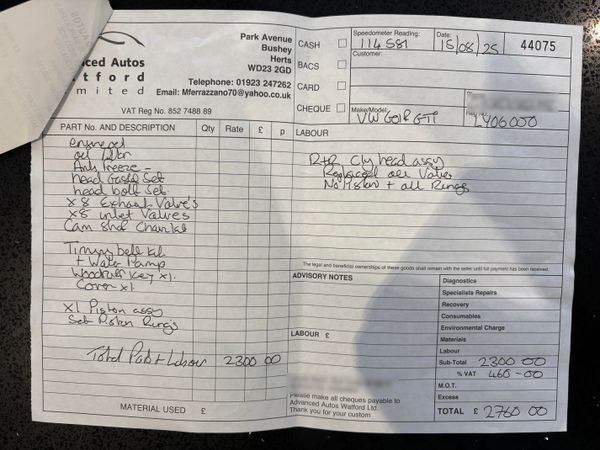 Advanced Autos
Watford
Limited
Park Avenue
Bushey
Herts
WD23 2GD
Telephone: 01923 247262
Email: Mferrazzano70@yahoo.co.uk
VAT Reg No. 852 7488 89
CASH
BACS
CARD
CHEQUE
Speedometer Reading:
114581
Date:
15/08/25
44075
Customer:
Make/Model:
VW Golf GTI
PART No. AND DESCRIPTION Qty Rate £ p
engine oil
oil filter
Anti freeze
head Gasket Set
head bolt Set
x8 Exhaust Valve's
x8 inlet Valves
Cam Shaft
Timing belt kit
+ Water Pump
Woodruff key x1.
Cover x1.
x1 Piston assy
Set Piston Rings
Total Parts + Labour 2300 00
MATERIAL USED £
LABOUR
R+R Cly head assy
Replaced all Valves
No Piston + all Rings
The legal and beneficial ownerships of these goods shall remain with the seller until full payment has been received.
ADVISORY NOTES
LABOUR £
Please make all cheques payable to
Advanced Autos Watford Ltd.
Thank you for your custom
Diagnostics
Specialists Repairs
Recovery
Consumables
Environmental Charge
Materials
Labour
Sub-Total 2300 00
% VAT 460-00
M.O.T.
Excess
TOTAL £ 2760 00